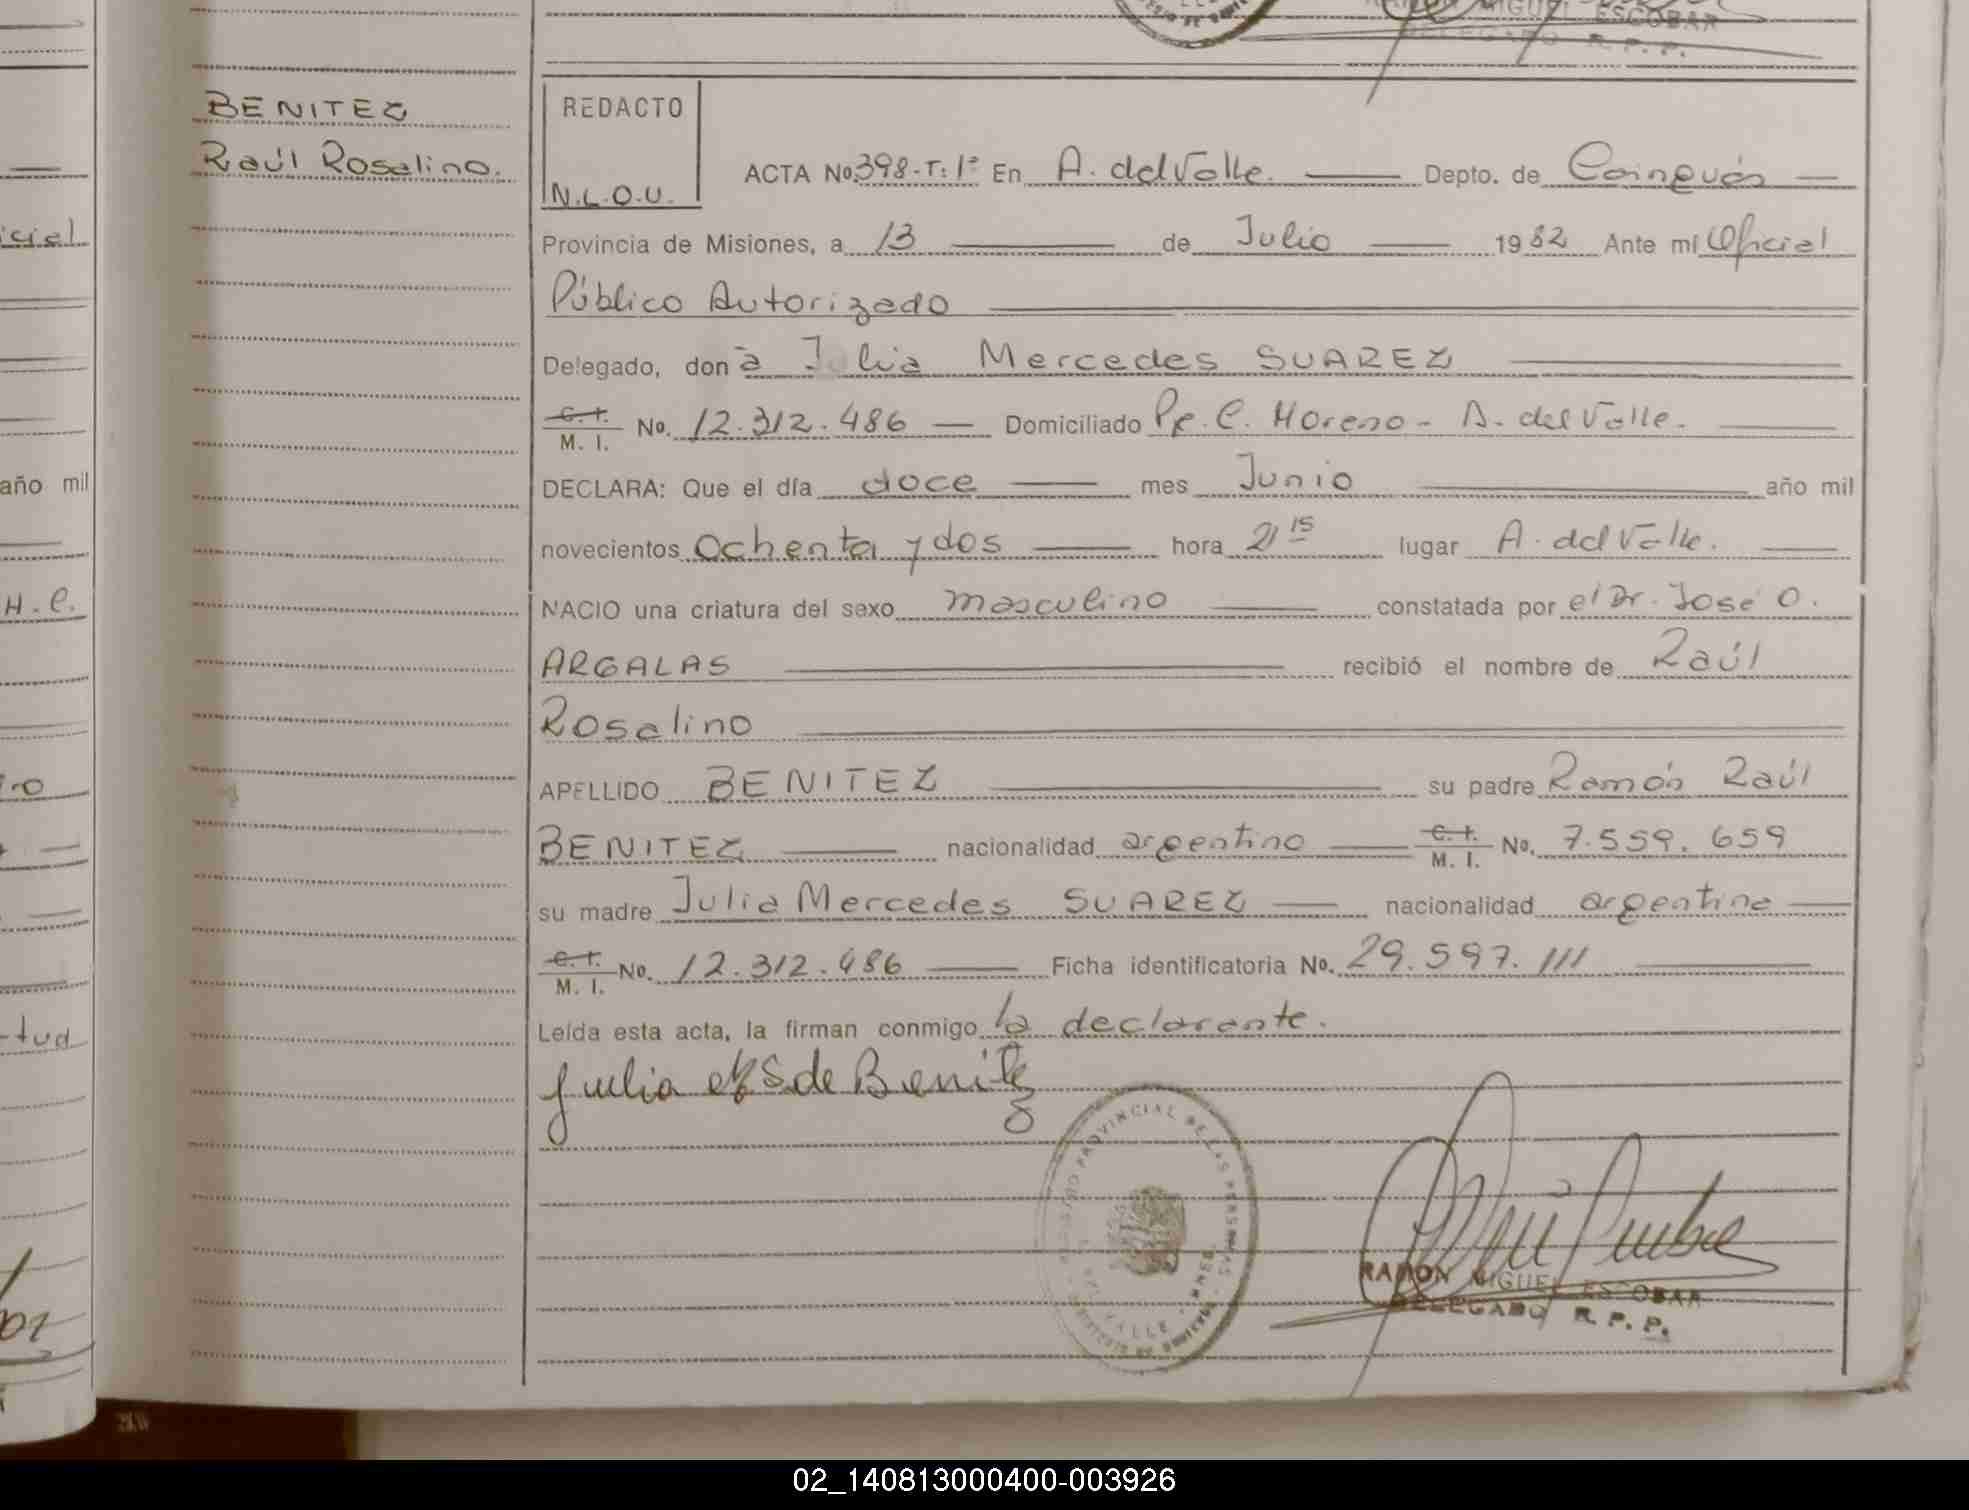 MIGUEL ESCOBAR
DELEGADO R. P. P.
BENITEZ
Raúl Rosalino.
REDACTO
N.L.O.U.
ACTA No. 398-T: 1º En A. del Valle. Depto. de Cainguás
Provincia de Misiones, a 13 de Julio 1982 Ante mí Oficial
Público Autorizado
Delegado, don a Julia Mercedes SUAREZ
C. I. M. I. No. 12.312.486 Domiciliado Pje. C. Moreno - A. del Valle.
DECLARA: Que el día doce mes Junio año mil
novecientos Ochenta y dos hora 21 15 lugar A. del Valle.
NACIO una criatura del sexo masculino constatada por el Dr. José O.
ARGALAS recibió el nombre de Raúl
Rosalino
APELLIDO BENITEZ su padre Ramón Raúl
BENITEZ nacionalidad argentino C. I. M. I. No. 7.559.659
su madre Julia Mercedes SUAREZ nacionalidad argentina
C. I. M. I. No. 12.312.486 Ficha identificatoria No. 29.597.111
Leída esta acta, la firman conmigo la declarante.
Julia M S de Benitez
RAMON MIGUEL ESCOBAR
DELEGADO R. P. P.
REGISTRO PROVINCIAL DE LAS PERSONAS
VALLE
icial
año mil
H. C.
tud
02_140813000400-003926